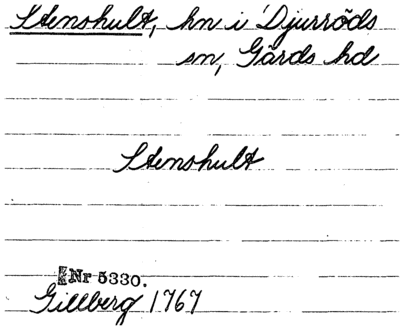 Stenshult, hn i Djurröds
sn, Gärds hd
Stenshult
Nr 5330.
Gillberg 1767